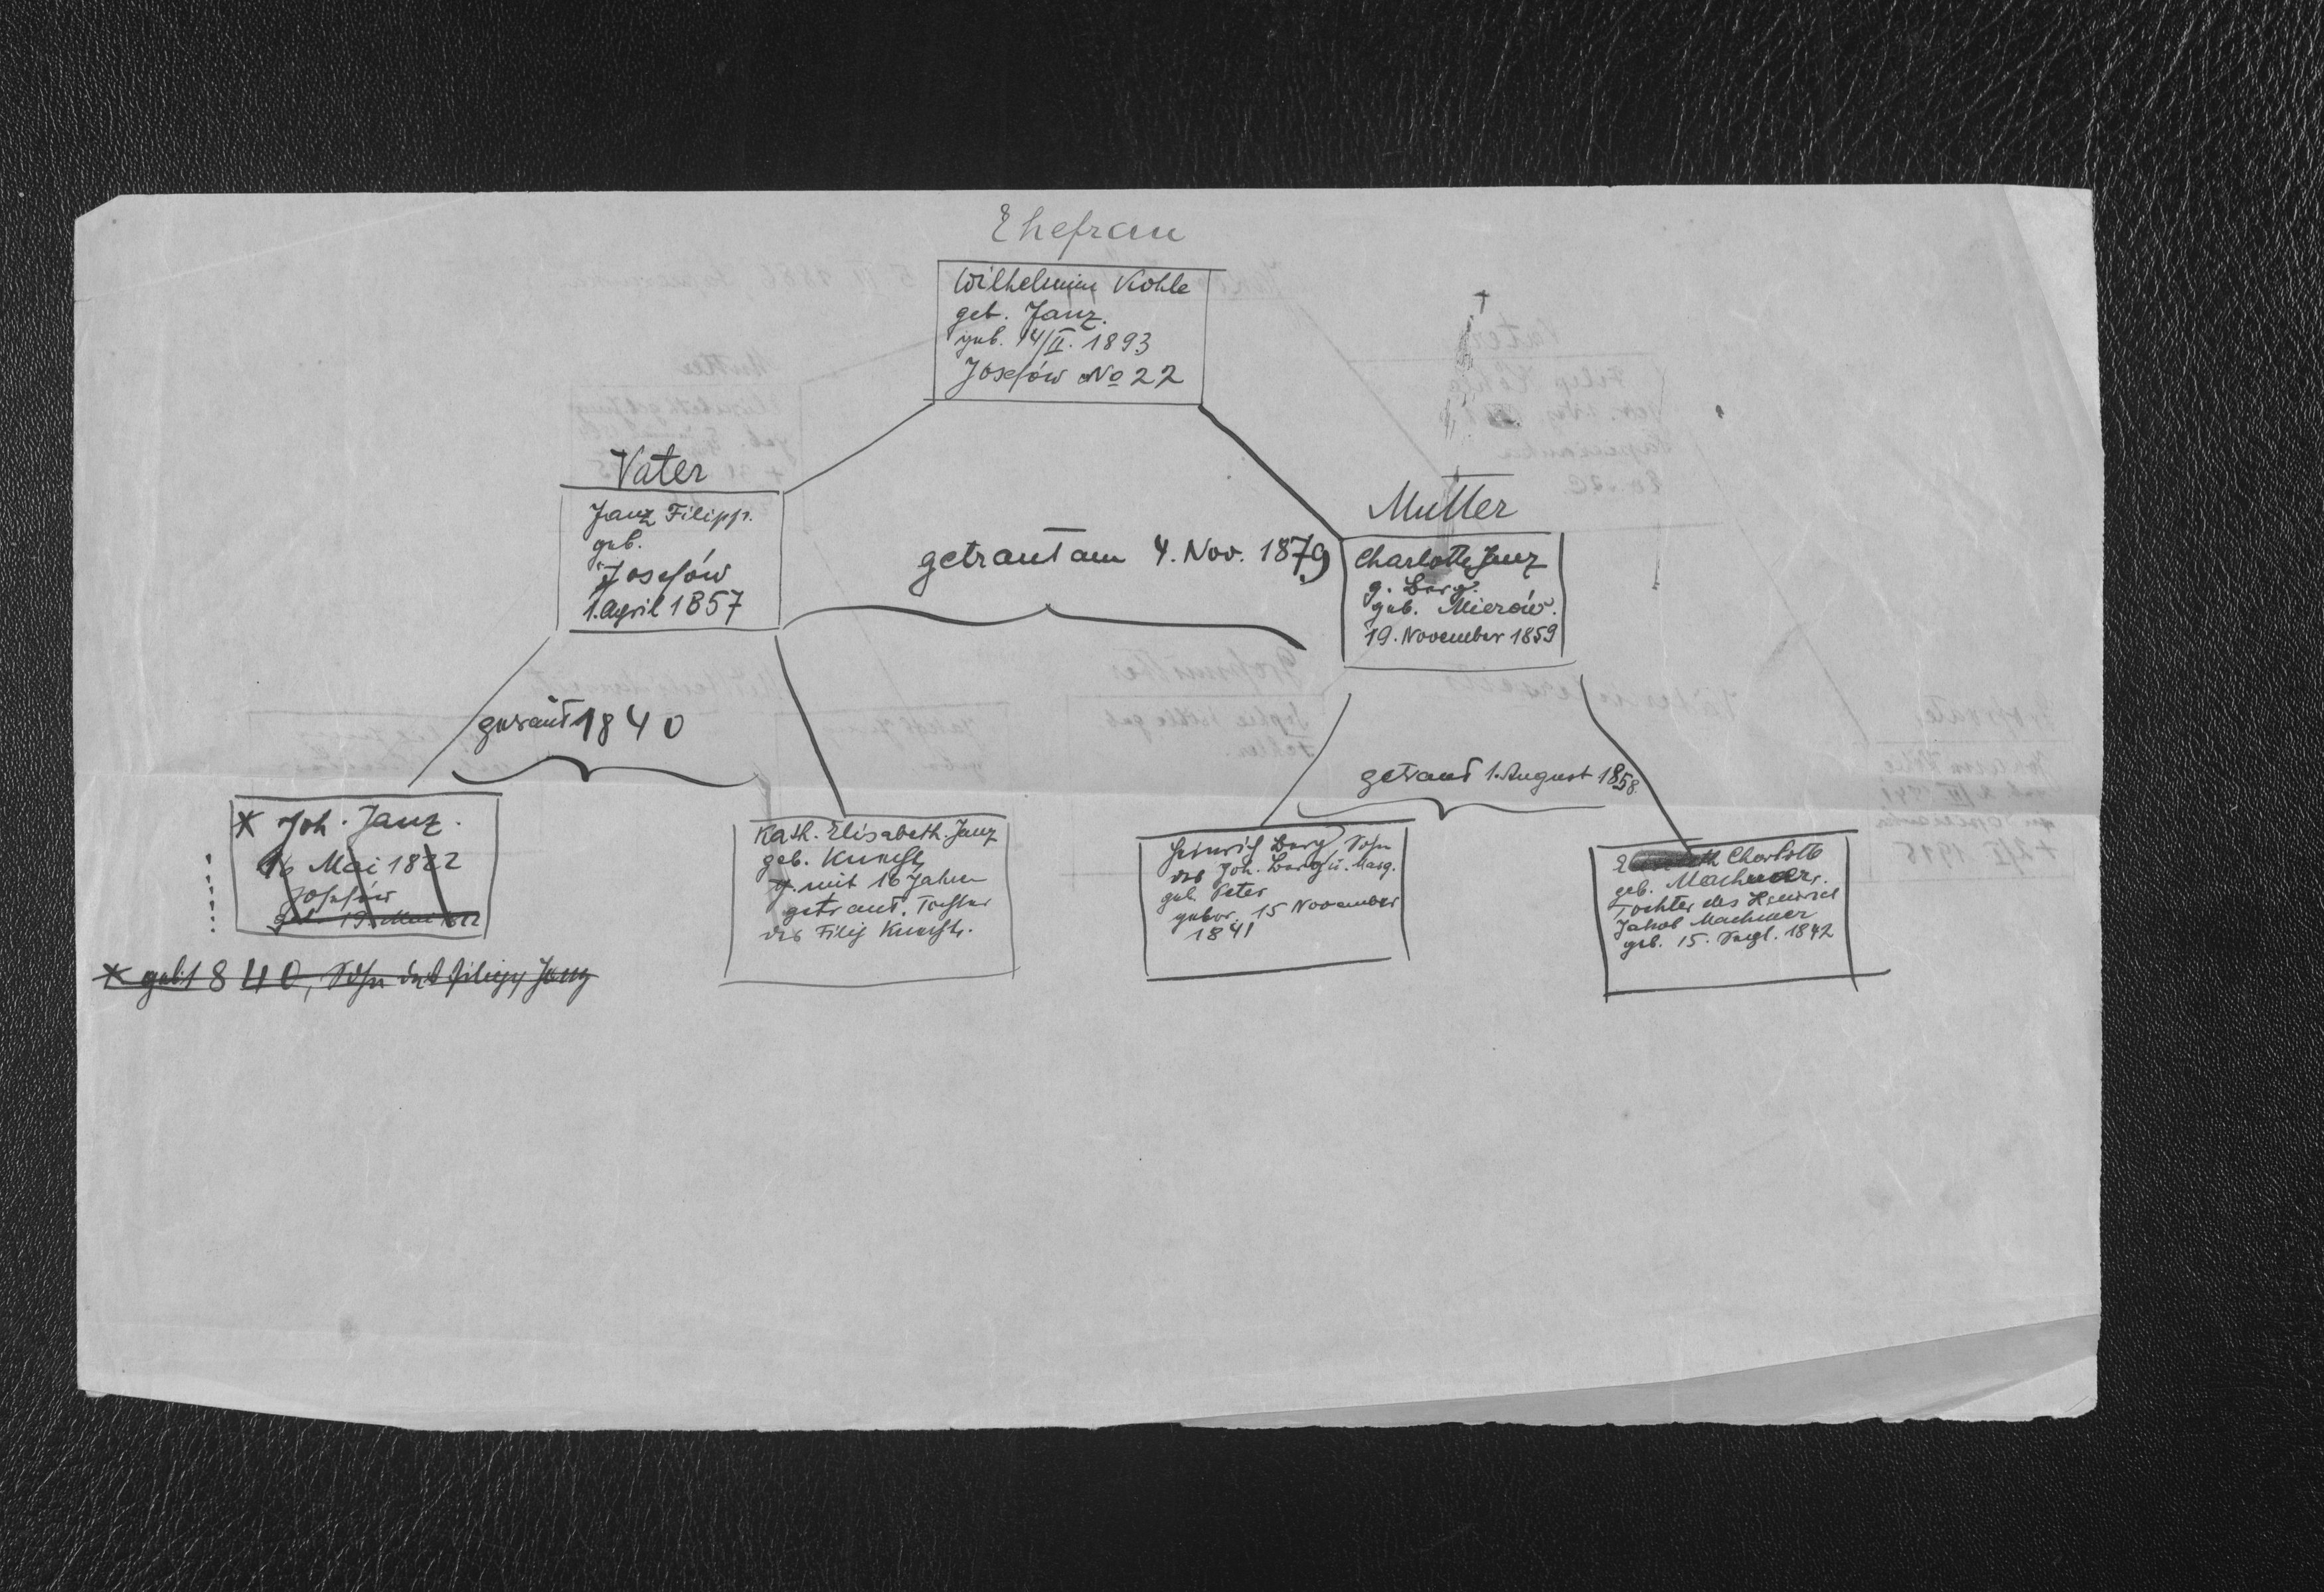 Ehefrau
Wilhelmine Kohle
geb. Janz.
geb. 14/II. 1893
Josefów No 22
Vater
Janz Filipp.
geb.
Josefów
1. April 1857
getraut am 4. Nov. 1879
Mutter
Charlotte Janz
g. Berg.
geb. Mierów.
19. November 1859
getraut 1840
getraut 1. August 1858.
* Joh. Janz.
16 Mai 1822
Josefów
geb. 19. Mai 1822
* geb. 1840, Sohn des Filipp Janz
Kath. Elisabeth. Janz
geb.
mit 16 Jahren
getraut. Tochter
des Filip
Heinrich Berg Sohn
des Joh. Berg u. Marg.
geb. Peter
gebor. 15 November
1841
Charlotte
geb. Machmer.
Tochter des Heinrich
Jakob Machmer
geb. 15. Sept. 1842